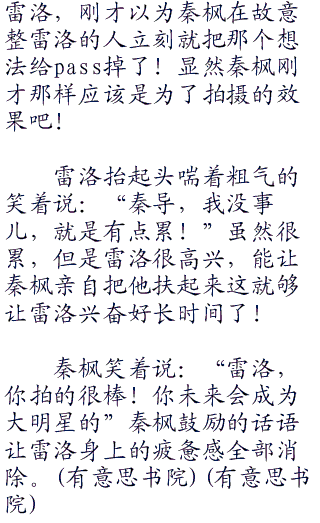 雷洛，刚才以为秦枫在故意
整雷洛的人立刻就把那个想
法给pass掉了！显然秦枫刚
才那样应该是为了拍摄的效
果吧！
雷洛抬起头喘着粗气的
笑着说：“秦导，我没事
儿，就是有点累！”虽然很
累，但是雷洛很高兴，能让
秦枫亲自把他扶起来这就够
让雷洛兴奋好长时间了！
秦枫笑着说：“雷洛，
你拍的很棒！你未来会成为
大明星的”秦枫鼓励的话语
让雷洛身上的疲惫感全部消
除。(有意思书院)(有意思书
院)